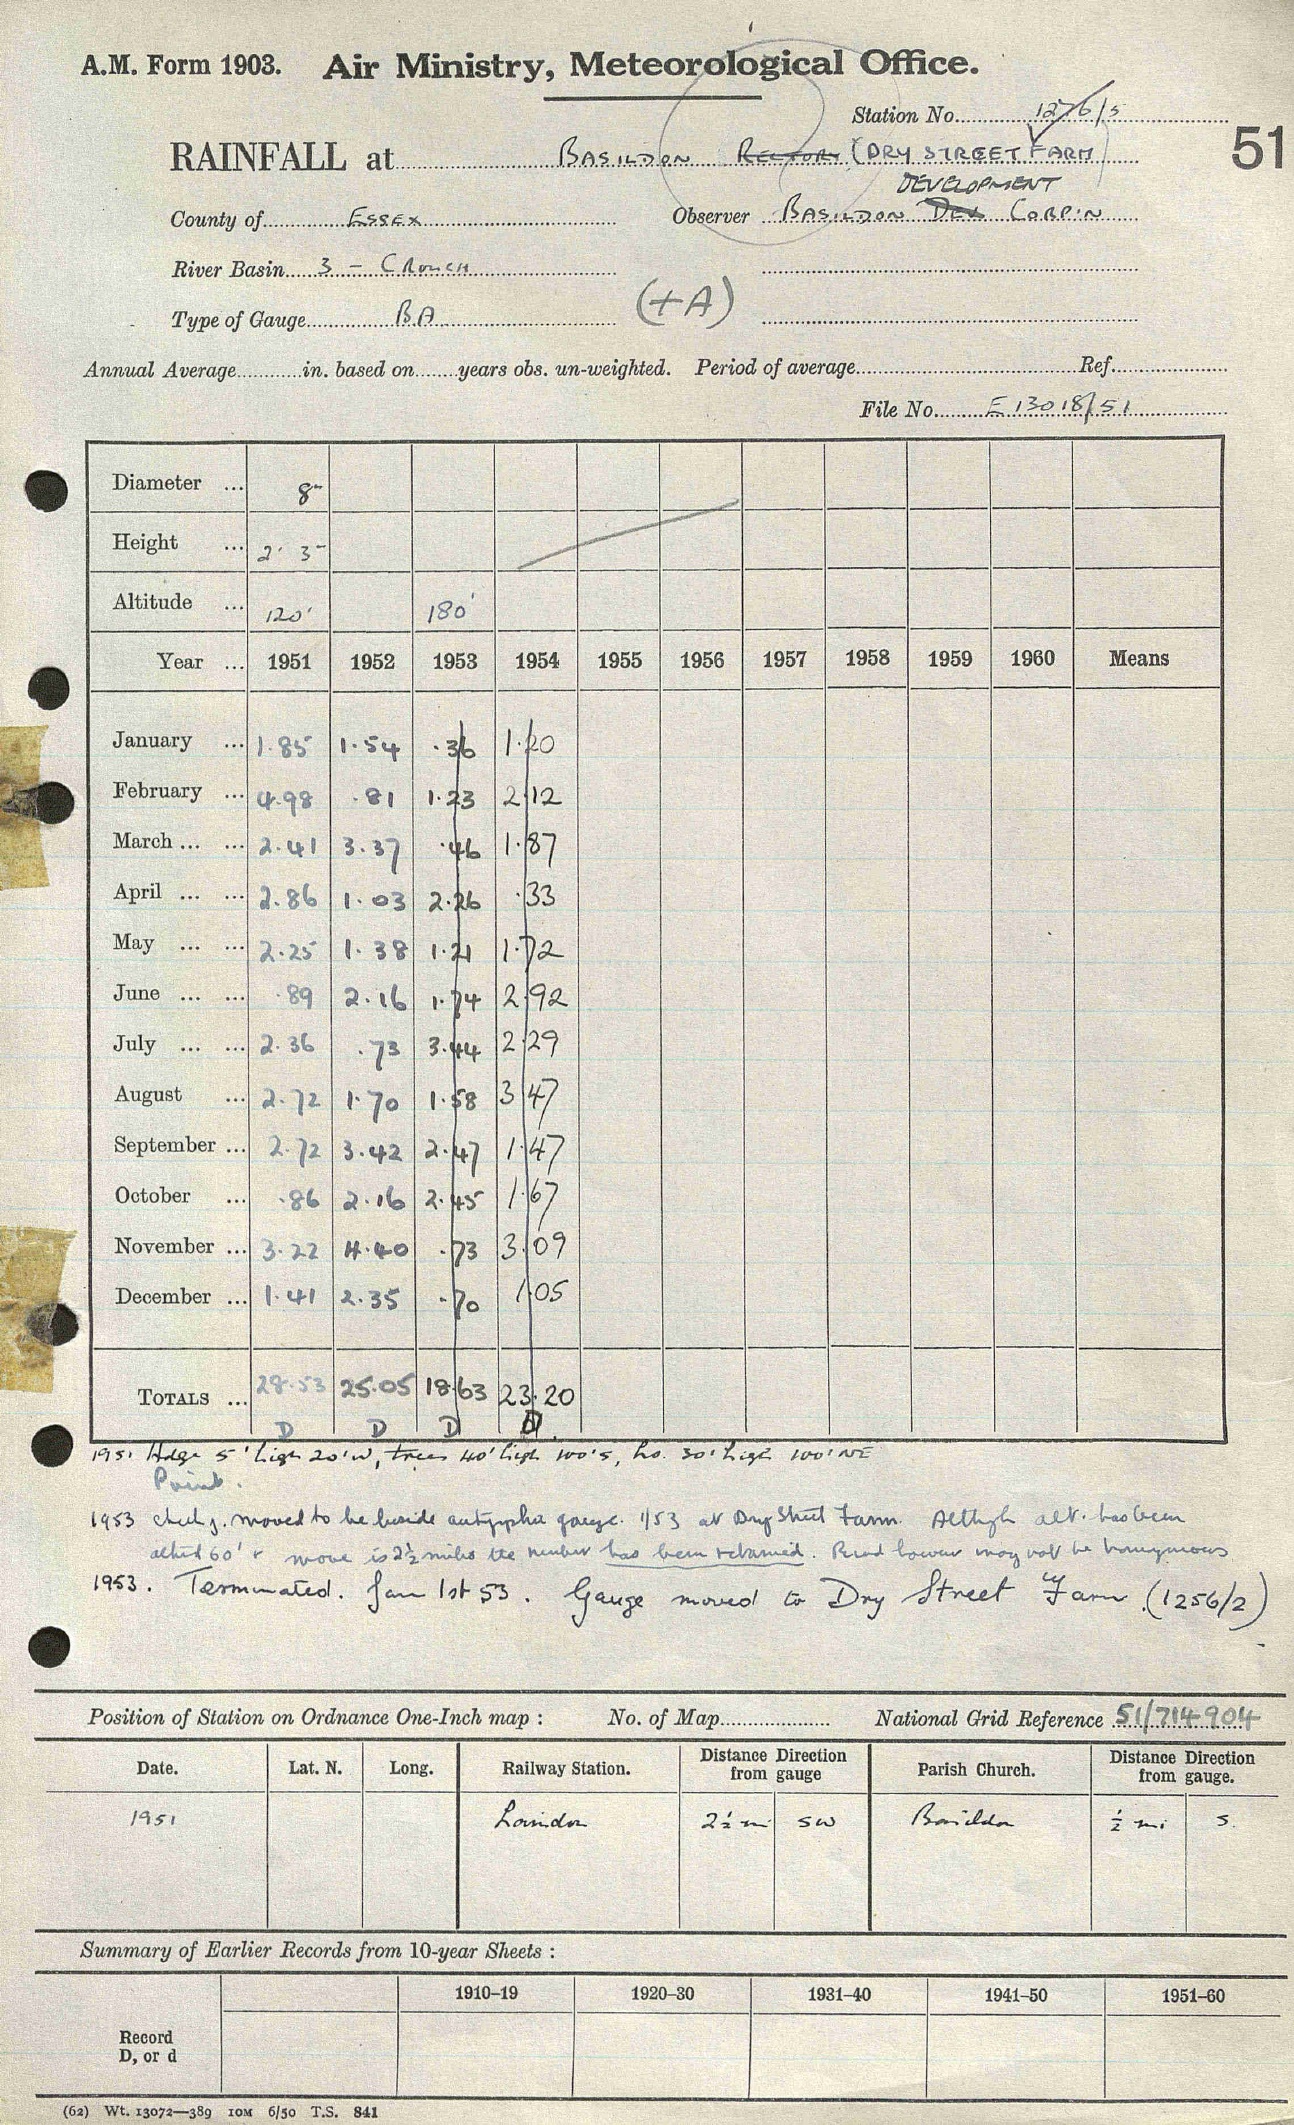 A.M. Form 1903. Air Ministry, Meteorological Office.
Station No. 1276/5
51
RAINFALL at BASILDON RECTORY (DRY STREET FARM)
DEVELOPMENT
County of ESSEX Observer BASILDON DEV CORP'N
River Basin 3 - CROUCH
Type of Gauge BA (+A)
Annual Average in. based on years obs. un-weighted. Period of average Ref.
File No. E 13018/51
Diameter ... 8"
Height ... 2' 3"
Altitude ... 120' 180'
Year ... 1951 1952 1953 1954 1955 1956 1957 1958 1959 1960 Means
January ... 1.85 1.54 .36 1.20
February ... 4.98 .81 1.23 2.12
March ... ... 2.41 3.37 .46 1.87
April ... ... 2.86 1.03 2.26 .33
May ... ... 2.25 1.38 1.21 1.72
June ... ... .89 2.16 1.74 2.92
July ... ... 2.36 .73 3.44 2.29
August ... 2.72 1.70 1.58 3.47
September ... 2.72 3.42 2.47 1.47
October ... .86 2.16 2.45 1.67
November ... 3.22 4.40 .73 3.09
December ... 1.41 2.35 .70 1.05
TOTALS ... 28.53 25.05 18.63 23.20
D D D D
1951 Hedge 5' high 20' W, trees 40' high 100' S, ho. 30' high 100' NE
1953 moved to be beside gauge 1/53 at Dry Street Farm. Altho' alt. has been
altered 60' & move is 2½ miles the number has been retained. Record however may not be homogenous
1953. Terminated. Jan 1st 53. Gauge moved to Dry Street Farm. (1256/2)
Position of Station on Ordnance One-Inch map : No. of Map National Grid Reference 51/714904
Date. Lat. N. Long. Railway Station. Distance Direction from gauge Parish Church. Distance Direction from gauge.
1951 Laindon 2½ mi SW Basildon ½ mi S.
Summary of Earlier Records from 10-year Sheets :
1910–19 1920–30 1931–40 1941–50 1951–60
Record
D, or d
(62) Wt. 13072—389 10M 6/50 T.S. 841